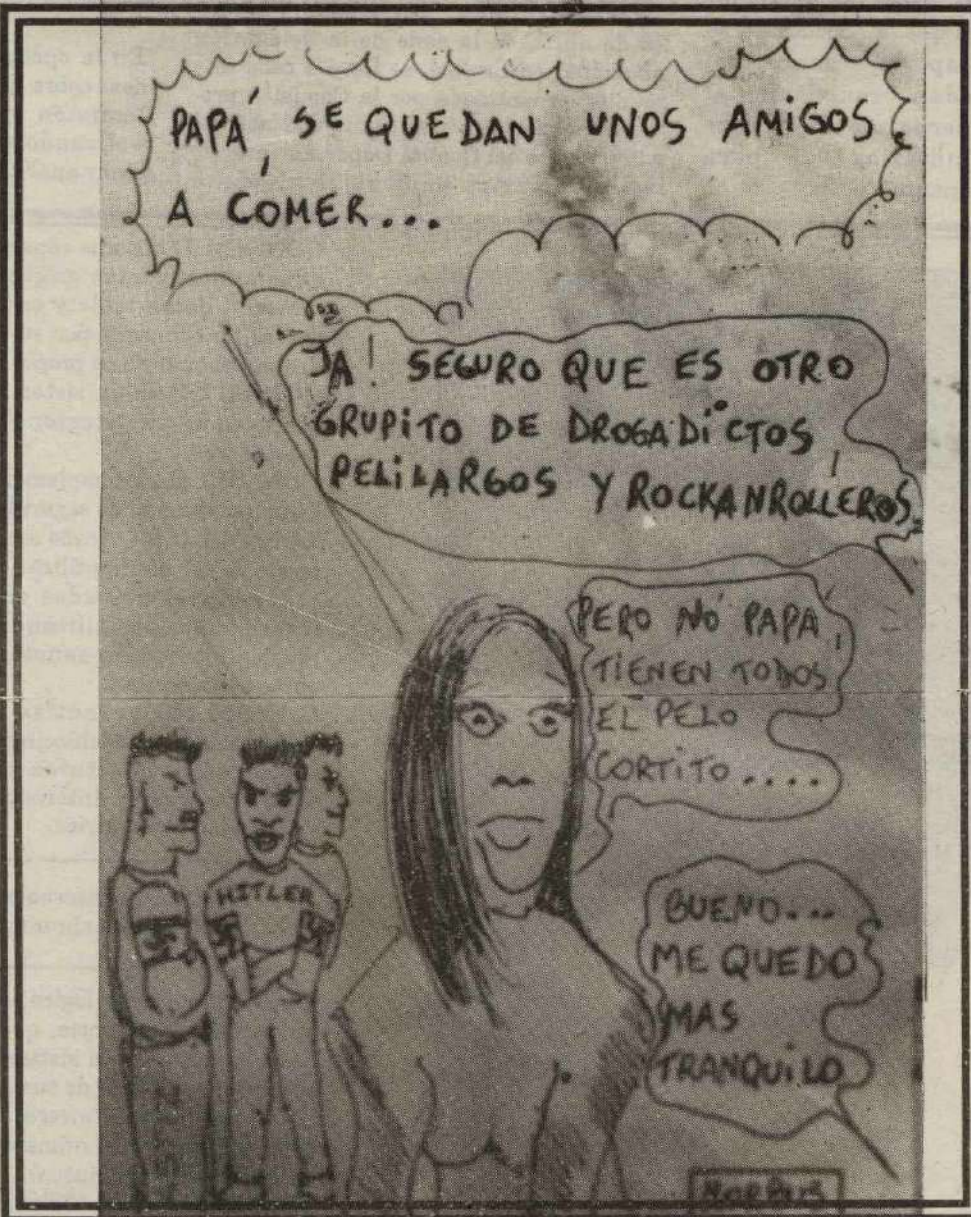 PAPÁ, SE QUEDAN UNOS AMIGOS
A COMER...
JA! SEGURO QUE ES OTRO
GRUPITO DE DROGADICTOS,
PELILARGOS Y ROCKANROLLEROS.
PERO NO PAPÁ,
TIENEN TODOS
EL PELO
CORTITO....
BUENO...
ME QUEDO
MAS
TRANQUILO
HITLER